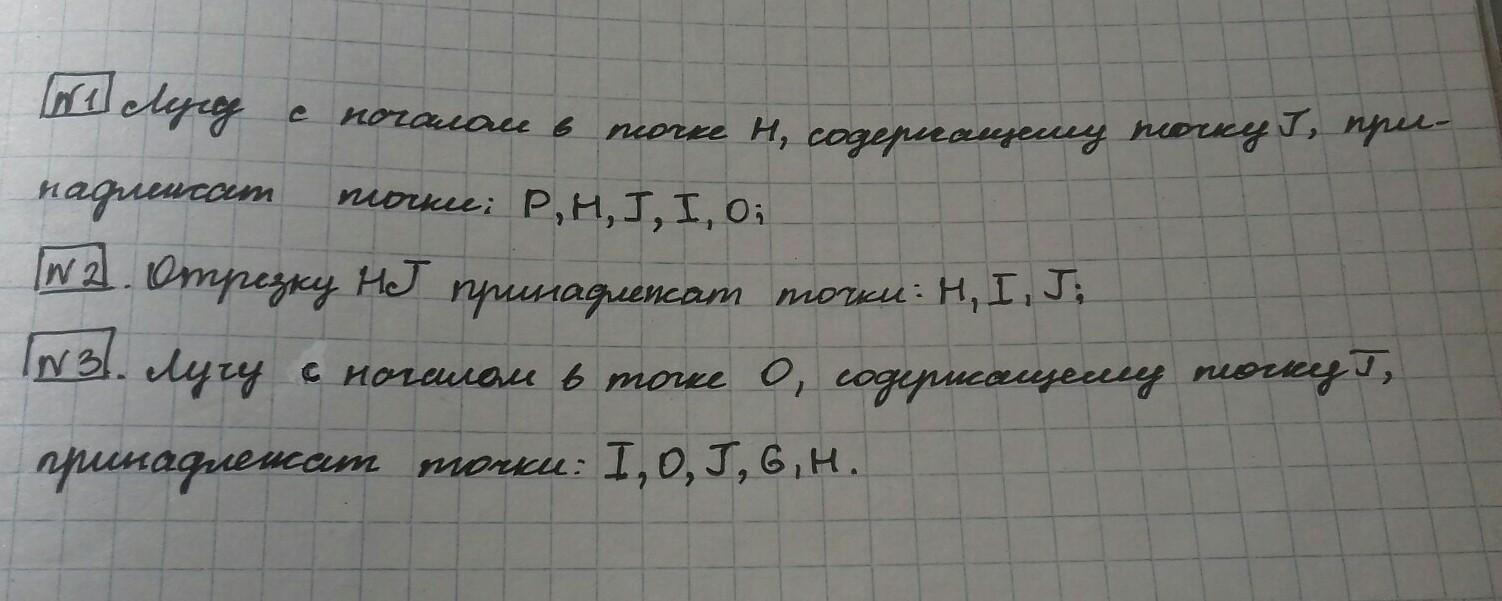 №1 Лучу с началом в точке H, содержащему точку J, при-
надлежат точки: P, H, J, I, O;
№2. Отрезку HJ принадлежат точки: H, I, J;
№3. Лучу с началом в точке O, содержащему точку J,
принадлежат точки: I, O, J, G, H.